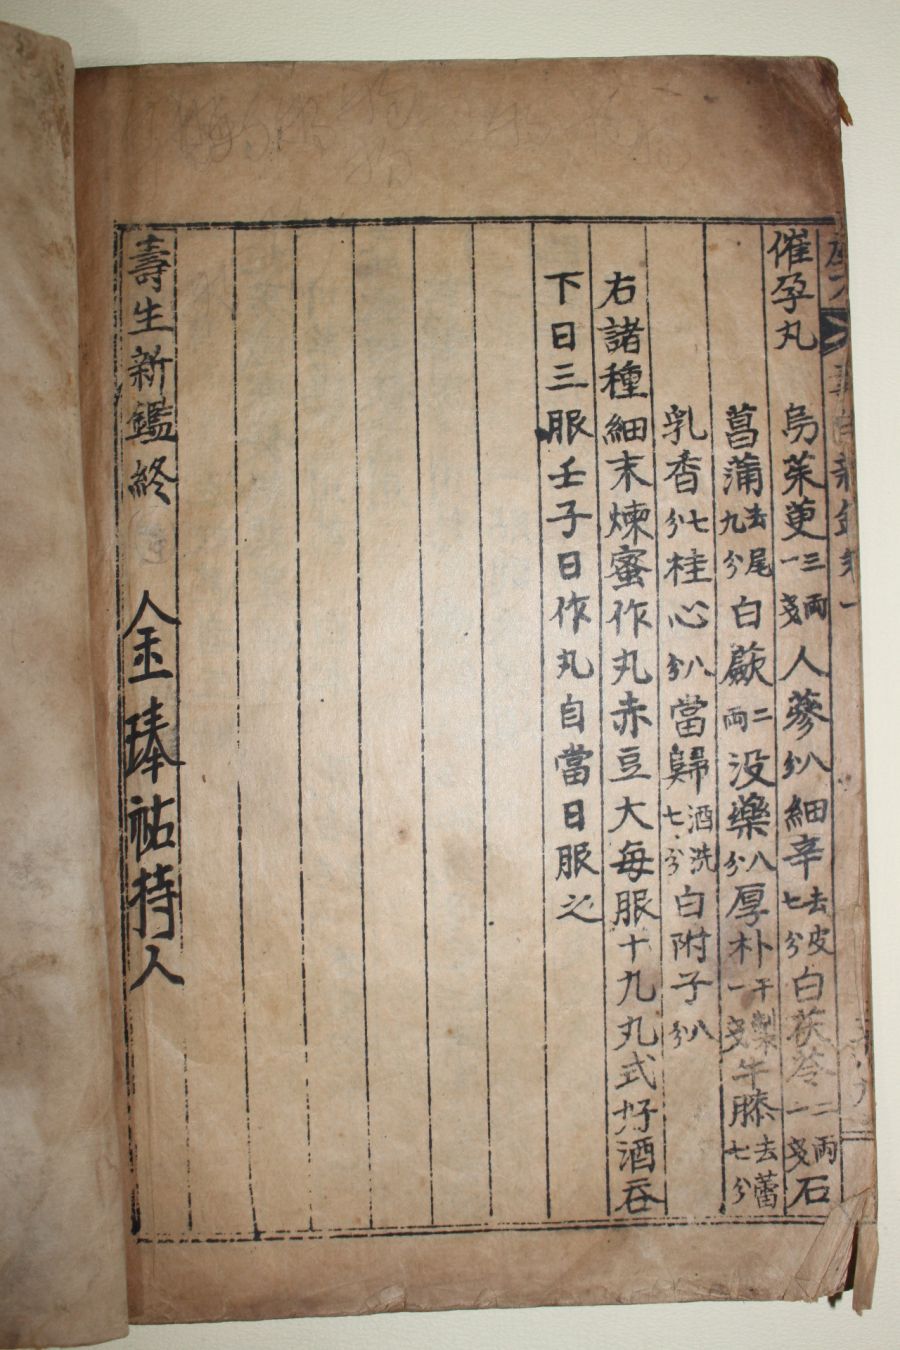 催孕丸
茱茰三兩一戔人蔘八分細辛去皮七分白茯苓二兩一戔石
菖蒲去尾九分白蕨二兩没藥八分厚朴干製一戔午膝去七分
乳香七分桂心八分當歸酒洗七分白附子八分
右諸種細末煉蜜作丸赤豆大每服十九丸式好酒吞
下日三服壬子日作丸自當日服之
壽生新鑑終
金琫祐持人